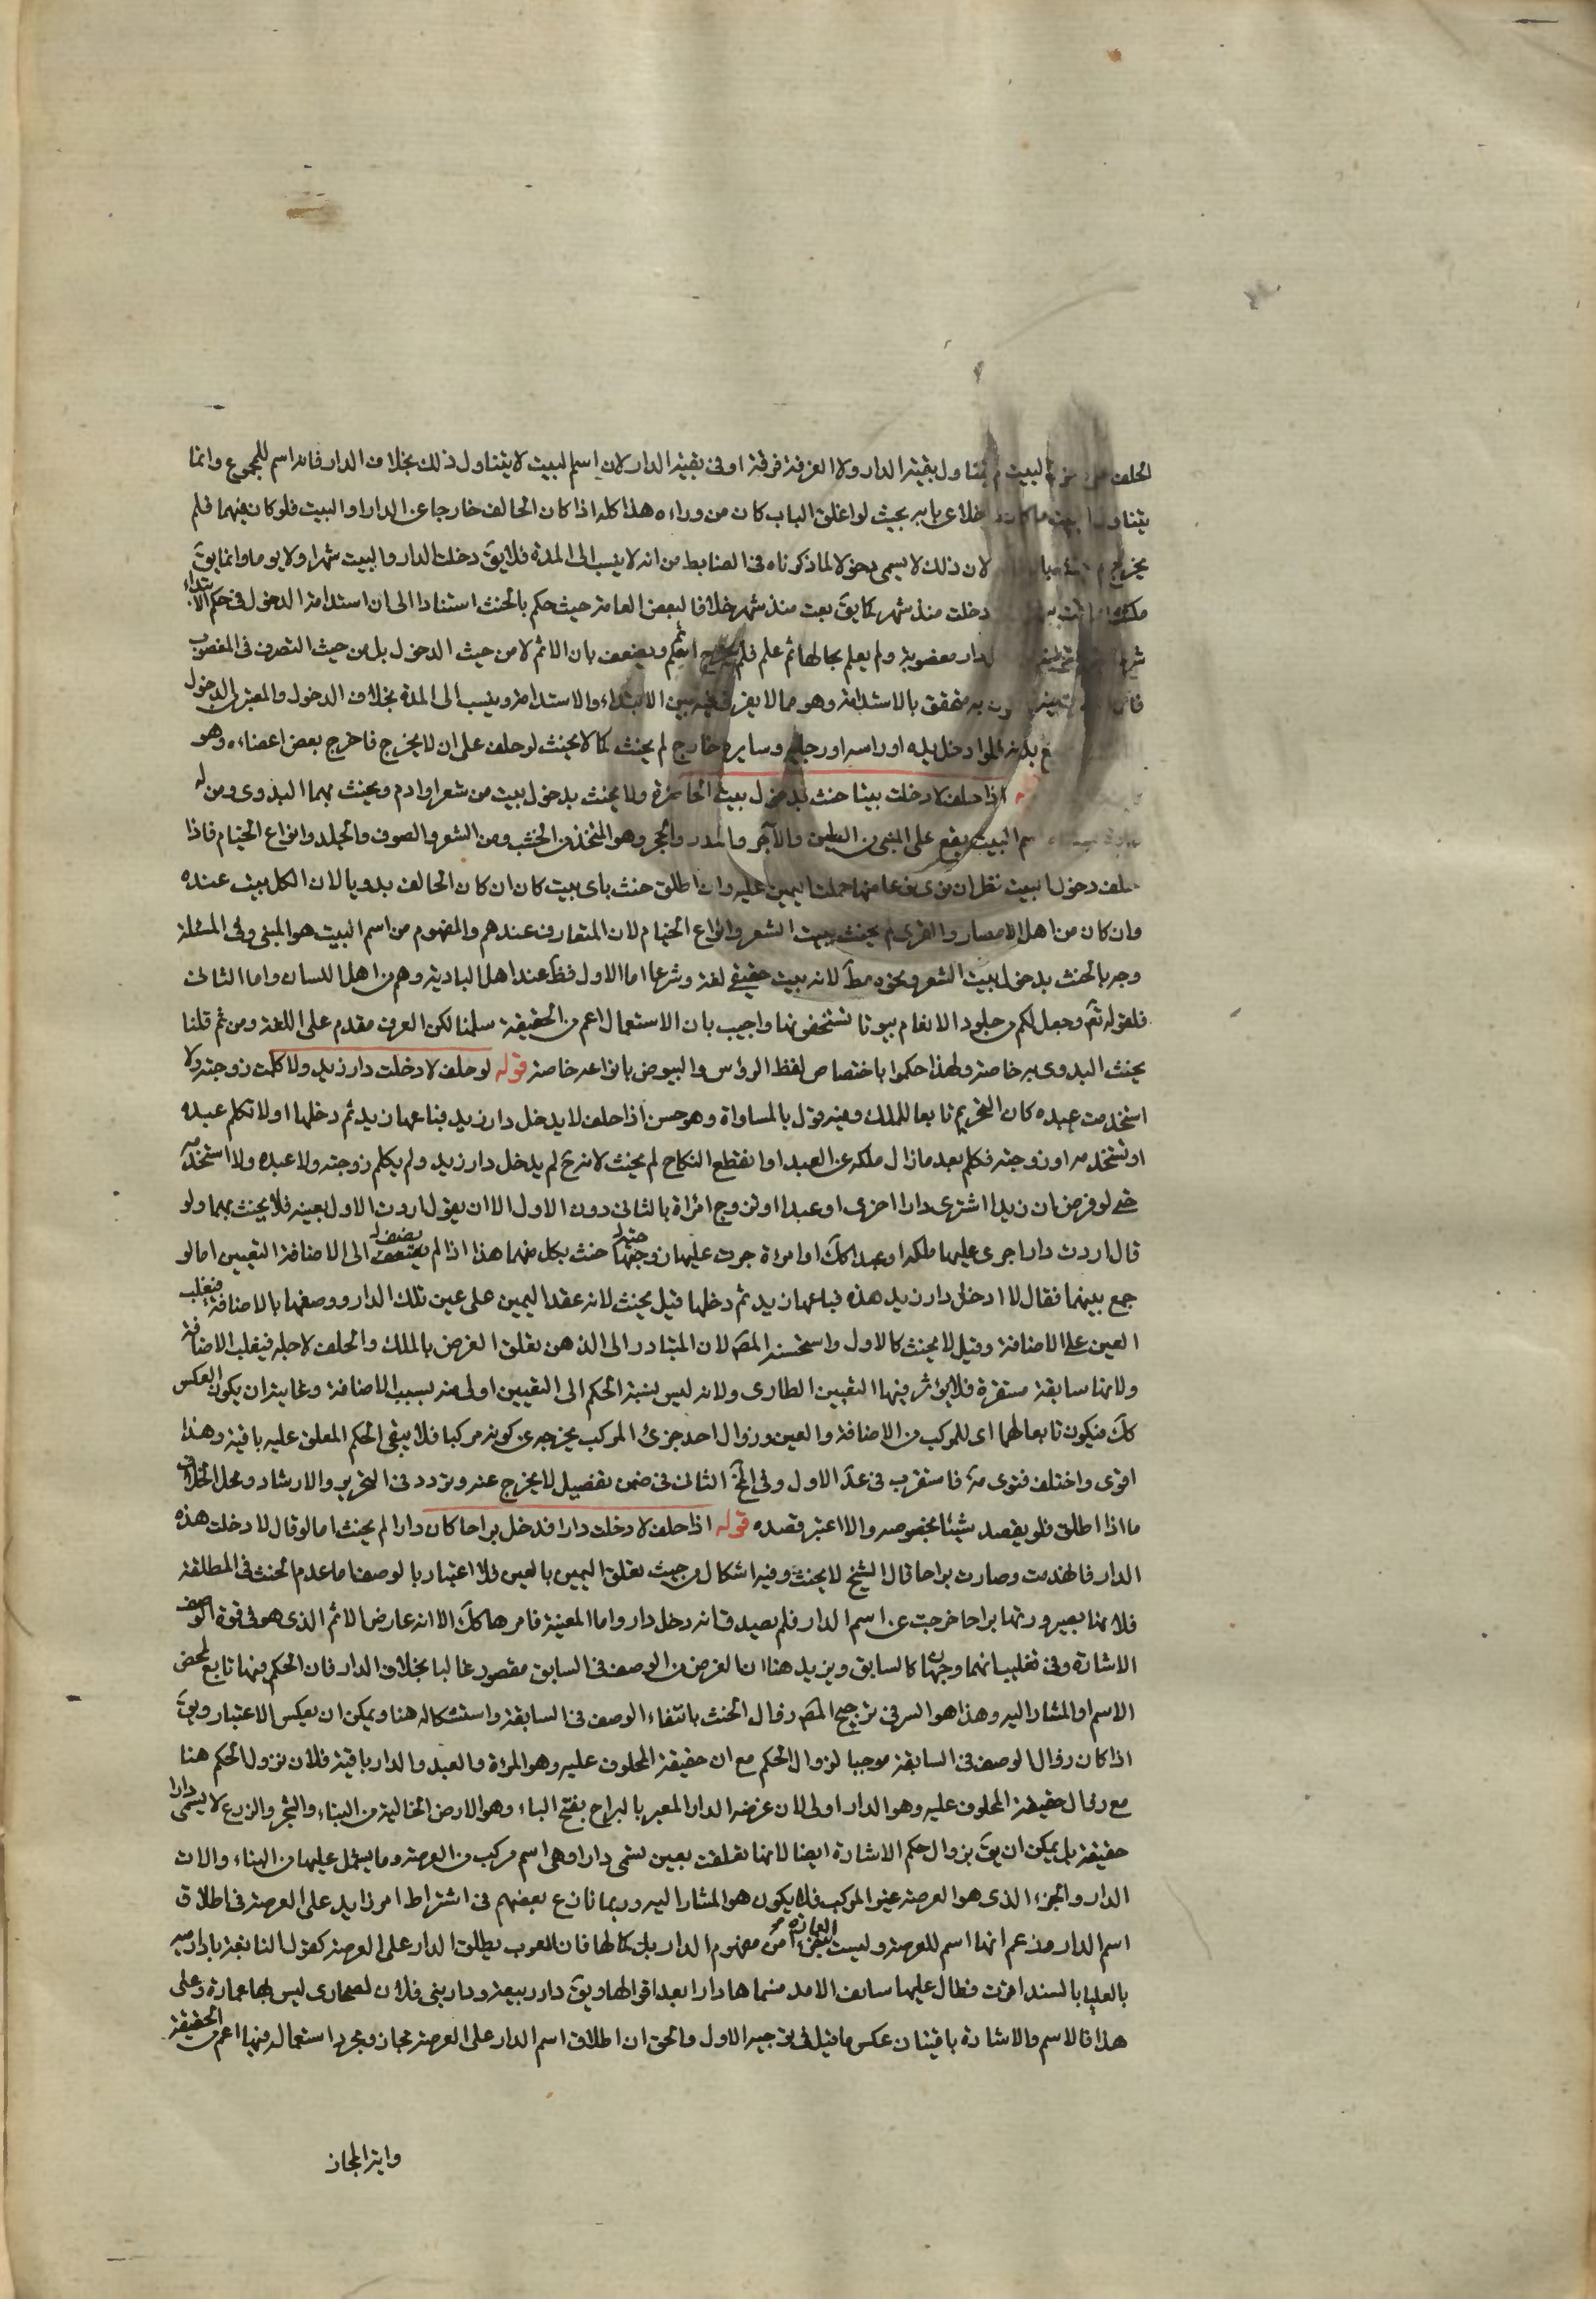 الحلف على البيت لم يتناول بقية الدار ولا الغرفة فوقه او فى بقية الدار لان اسم البيت لا يتناول ذلك بخلاف الدار فانه اسم للمجموع وانما
يتناول البيت ما كان داخلا عن بابه بحيث لو اغلق الباب كان من وراءه هذا كله اذا كان الحالف خارجا عن الدار او البيت فلو كان فيهما فلم
يخرج لم يحنث لان ذلك لا يسمى دخولا لما ذكرناه فى الضابط من انه لا ينسب الى المدة فلا يق دخلت الدار والبيت شهرا ولا يوما وانما يق
دخلت منذ شهر كما يق بعت منذ شهر خلافا لبعض العامة حيث حكم بالحنث استنادا الى ان استدامة الدخول فى حكم الابتداء
دار مغصوبة ولم يعلم بحالها ثم علم فلم يخرج اثم ويضعف بان الاثم لا من حيث الدخول بل من حيث التصرف فى المغصوب
به متحقق بالاستدامة وهو مما لا يفرق فيه بين الابتداء والاستدامة وينسب الى المدة بخلاف الدخول والمعتبر فى الدخول
بدنه فلو ادخل يده او راسه او رجليه وسايره خارج لم يحنث كما لا يحنث لو حلف على ان لا يخرج فاخرج بعض اعضاءه وهو
اذا حلف لا دخلت بيتا حنث بدخول بيت الحاضرة ولا يحنث بدخول بيت من شعر او ادم ويحنث بهما البدوى ومن له
اسم البيت يقع على المبنى من الطين والآجر والمدر والحجر وهو المتخذ من الخشب ومن الشعر والصوف والجلد وانواع الخيام فاذا
حلف دخول البيت نظر ان نوى نوعا منها حملت اليمين عليه وان اطلق حنث باى بيت كان ان كان الحالف بدويا لان الكل بيت عنده
وان كان من اهل الامصار والقرى لم يحنث ببيت الشعر وانواع الخيام لان المتعارف عندهم والمفهوم من اسم البيت هو المبنى وفى المسئلة
وجه بالحنث بدخول بيت الشعر ونحوه مط لانه بيت حقيقى لغة وشرعا اما الاول فظ عند اهل البادية وهم من اهل اللسان واما الثانى
فلقوله تع وجعل لكم من جلود الانعام بيوتا تستخفونها واجيب بان الاستعمال اعم من الحقيقة سلمنا لكن العرف مقدم على اللغة ومن ثم قلنا
يحنث البدوى به خاصة ولهذا حكموا باختصاص لفظ الرؤس والبيوض بانواعه خاصة قوله لو حلف لا دخلت دار زيد ولا كلمت زوجته ولا
استخدمت عبده كان التحريم تابعا للملك وفيه قول بالمساواة وهو حسن اذا حلف لا يدخل دار زيد فباعها زيد ثم دخلها او لا تكلم عبده
او تستخدمه او زوجته فكلم بعد ما زال ملكه عن العبد او انقطع النكاح لم يحنث لانه ح لم يدخل دار زيد ولم يكلم زوجته ولا عبده ولا استخدمه
حتى لو فرض ان زيدا اشترى دارا اخرى او عبدا او تزوج امرأة بالثانى دون الاول الا ان يقول اردت الاول بعينه فلا يحنث بهما ولو
قال اردت دارا جرى عليها ملكه او عبدا كك او امراة جرت عليها زوجيته حنث بكل منهما هذا اذا لم يضف الى الاضافة التعيين اما لو
جمع بينهما فقال لا ادخل دار زيد هذه فباعها زيد ثم دخلها قيل يحنث لانه عقد اليمين على عين تلك الدار ووصفها بالاضافة فيغلب
العين على الاضافة وقيل لا يحنث كالاول واستحسنه المصر لان المتبادر الى الذهن تعلق الغرض بالملك والحلف لاجله فيغلب الاضافة
ولانها سابقة مستقرة فلا يؤثر فيها التعيين الطارى ولانه ليس نسبة الحكم الى التعيين اولى منه بسبب الاضافة وغايته ان يكون العكس
كك فيكون تابعا لهما اى للمركب من الاضافة والعين وزوال احد جزئى المركب يخرجه عن كونه مركبا فلا يبقى الحكم المعلق عليه باقية وهذا
اقوى واختلف فتوى مة فاستقرب فى عد الاول وفى لخ الثانى فى ضمن تفصيل لا يخرج عنه وتردد فى التحرير والارشاد ومحل الخلاف
ما اذا اطلق فلو يقصد شيئا بخصوصه والا اعتبر قصده قوله اذا حلف لا دخلت دارا فدخل براحا كان دارا لم يحنث اما لو قال لا دخلت هذه
الدار فانهدمت وصارت براحا قال الشيخ لا يحنث وفيه اشكال من حيث تعلق اليمين بالعين فلا اعتبار بالوصف اما عدم الحنث فى المطلقة
فلانها بصيرورتها براحا خرجت عن اسم الدار فلم يصدق انه دخل دار واما المعينة فامرها كك الا انه عارض الاثم الذى هو فى قوة الوصف
الاشارة وفى تغليب ايهما وجهان كالسابق ويزيد هنا ان الغرض من الوصف فى السابق مقصود غالبا بخلاف الدار فان الحكم فيها تابع لمحض
الاسم او المشار اليه وهذا هو السر فى ترجيح المصر زوال الحنث بانتفاء الوصف فى السابقة واستشكاله هنا ويمكن ان يعكس الاعتبار ويق
اذا كان زوال الوصف فى السابقة موجبا لزوال الحكم مع ان حقيقة المحلوف عليه وهو المراة والعبد والدار باقية فلان نزول الحكم هنا
مع زوال حقيقة المحلوف عليه وهو الدار اولى لان عرضه الدار المعبر بالبراح بفتح الباء وهو الارض الخالية من البناء والشجر والزرع لا يسمى دارا
حقيقة بل يمكن ان يق بزوال حكم الاشارة ايضا لانها تعلقت بعين تسمى دارا وهى اسم مركب من العرصة وما يشمل عليها من البناء والات
الدار والجزء الذى هو العرصة غير المركب فلا يكون هو المشار اليه وربما نازع بعضهم فى اشتراط امر زايد على العرصة فى اطلاق
اسم الدار فزعم انها اسم للعرصة وليست العمارة جزءا من مفهوم الدار بل كمالها فان العرب يطلق الدار على العرصة كقول النابغة يا دار مية
بالعليا بالسند اقوت فطال عليها سالف الامد فسماها دارا بعد اقوائها ويق دار ربيعة ودار بنى فلان لصحارى ليس بها عمارة وعلى
هذا فالاسم والاشارة باقيتان عكس ما قيل فى توجيه الاول والحق ان اطلاق اسم الدار على العرصة مجاز ومجرد استعماله فيها اعم من الحقيقة
واية المجاز